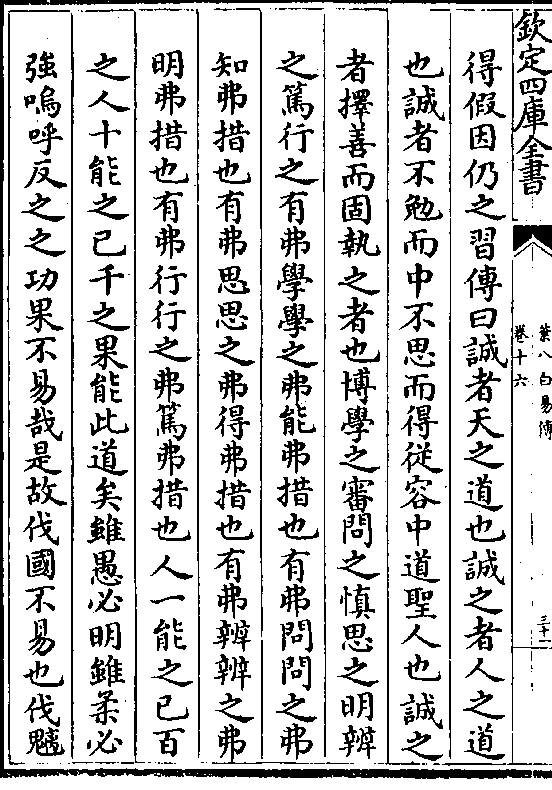 欽定四庫全書
葉八白易傳
卷十六
三十一
得假因仍之習傳曰誠者天之道也誠之者人之道
也誠者不勉而中不思而得從容中道聖人也誠之
者擇善而固執之者也博學之審問之慎思之明辨
之篤行之有弗學學之弗能弗措也有弗問問之弗
知弗措也有弗思思之弗得弗措也有弗辨辨之弗
明弗措也有弗行行之弗篤弗措也人一能之已百
之人十能之已千之果能此道矣雖愚必明雖柔必
強嗚呼反之之功果不易哉是故伐國不易也伐魑